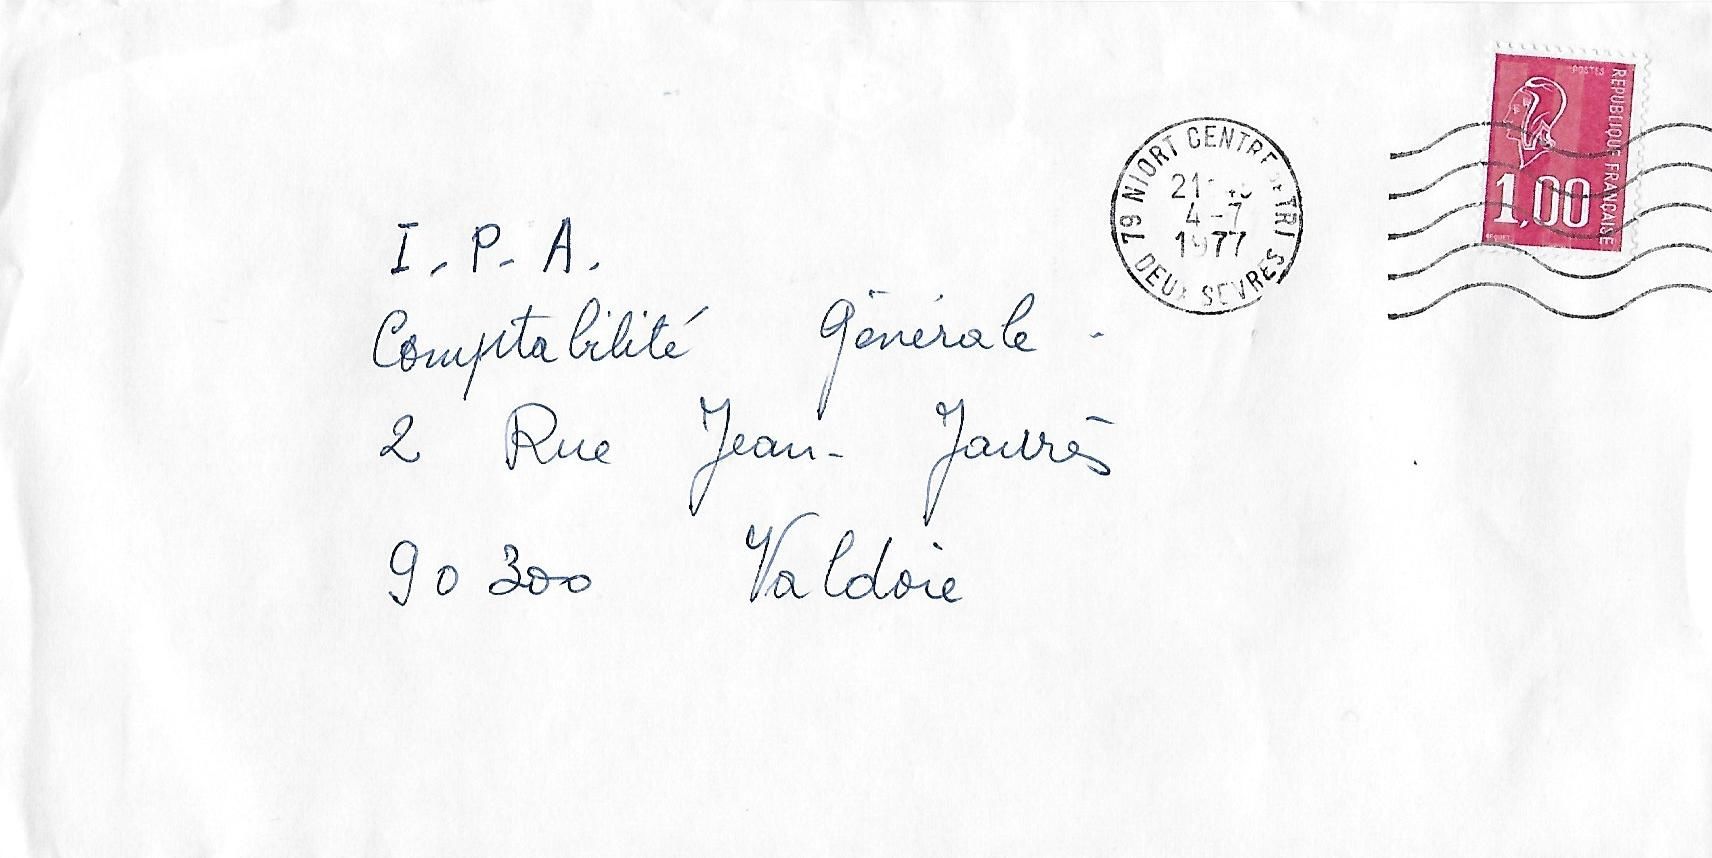 POSTES
REPUBLIQUE FRANÇAISE
1,00
79 NIORT CENTRE DE TRI
4-7
1977
DEUX SEVRES
I.P.A.
Comptabilité Générale -
2 Rue Jean-Jaurès
90300 Valdoie